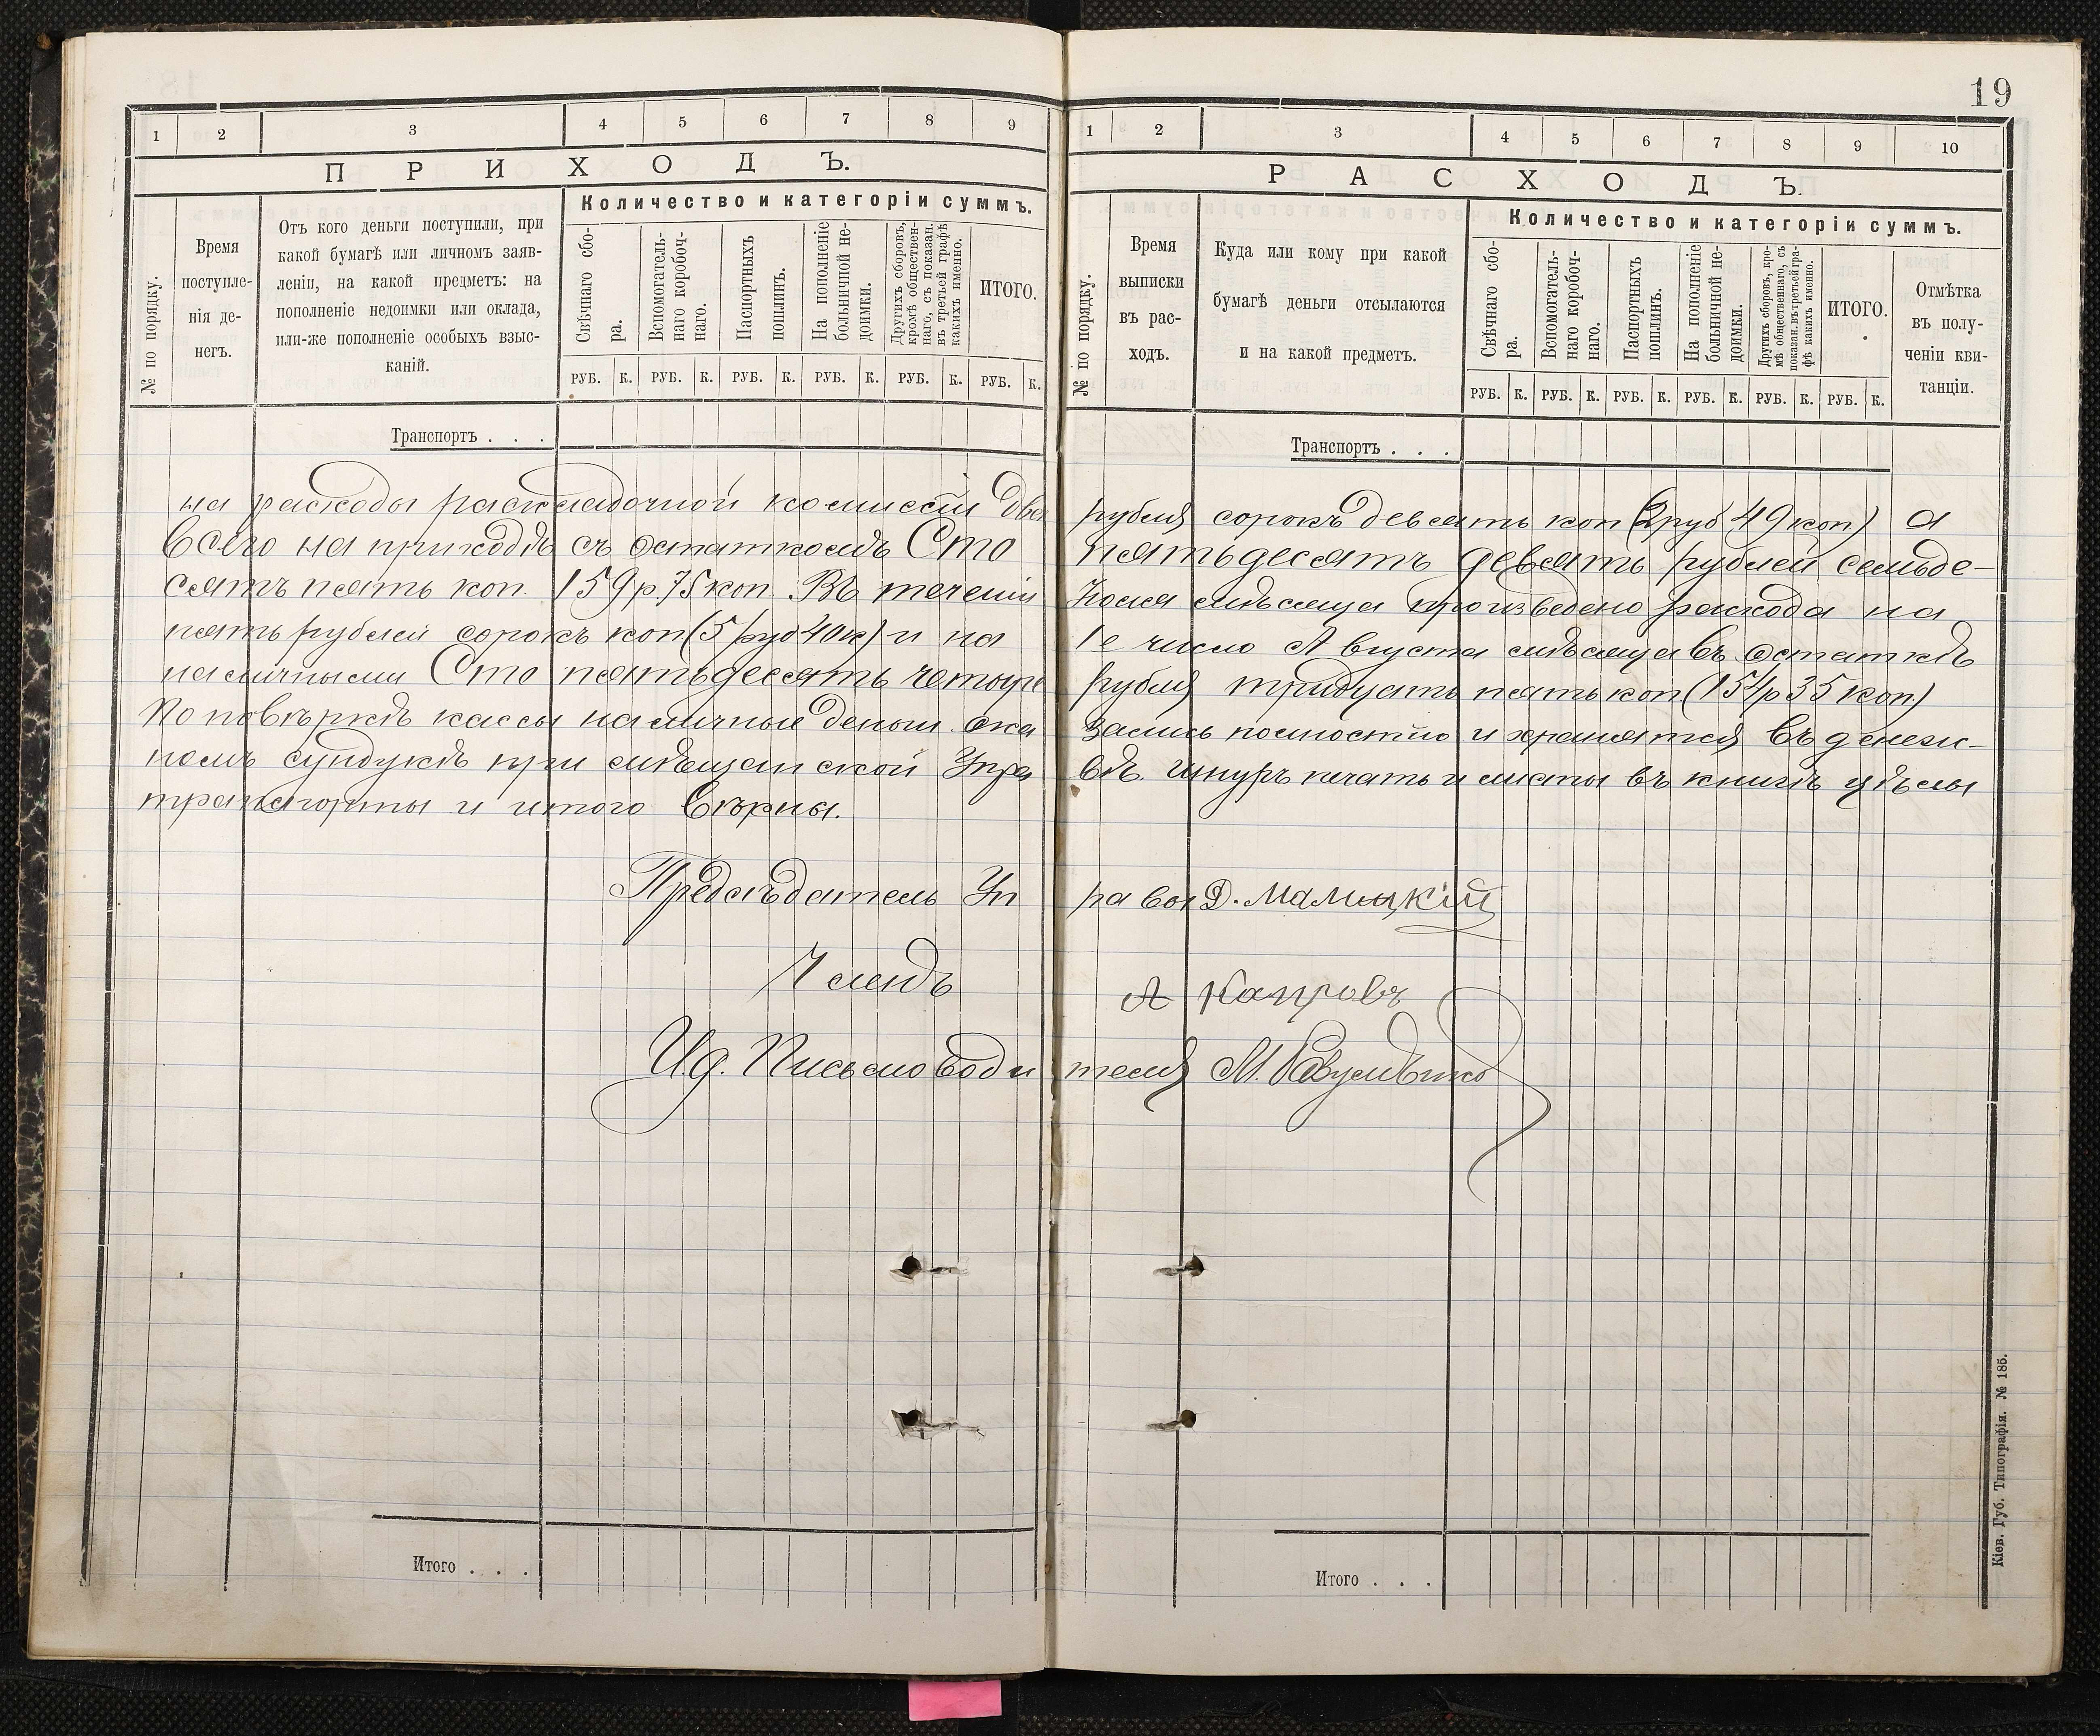 19
1 2 3 4 5 6 7 8 9
ПРИХОДЪ.
Количество и категоріи суммъ.
№ по порядку.
Время
поступле-
нія де-
негъ.
Отъ кого деньги поступили, при
какой бумагѣ или личномъ заяв-
леніи, на какой предметъ: на
пополненіе недоимки или оклада,
или-же пополненіе особыхъ взыс-
каній.
Свѣчнаго сбо-
ра.
Вспомогатель-
наго коробоч-
наго.
Паспортныхъ
пошлинъ.
На пополненіе
больничной не-
доимки.
Другихъ сборовъ,
кромѣ обществен-
наго, съ показан.
въ третьей графѣ
какихъ именно.
ИТОГО.
РУБ. К. РУБ. К. РУБ. К. РУБ. К. РУБ. К. РУБ. К.
Транспортъ . . .
1 2 3 4 5 6 7 8 9 10
РАСХОДЪ.
Количество и категоріи суммъ.
№ по порядку.
Время
выписки
въ рас-
ходъ.
Куда или кому при какой
бумагѣ деньги отсылаются
и на какой предметъ.
Свѣчнаго сбо-
ра.
Вспомогатель-
наго коробоч-
наго.
Паспортныхъ
пошлинъ.
На пополненіе
больничной не-
доимки.
Другихъ сборовъ, кро-
мѣ общественнаго, съ
показан. въ третьей гра-
фѣ какихъ именно.
ИТОГО.
Отмѣтка
въ полу-
ченіи кви-
танціи.
РУБ. К. РУБ. К. РУБ. К. РУБ. К. РУБ. К. РУБ. К.
Транспортъ . . .
на расходы раскладочной комиссіи два рубля сорокъ девять коп (2 руб 49 коп) а
всего на приходѣ съ остаткомъ Сто пятьдесятъ девять рублей семьде-
сятъ пять коп. 159 р 75 коп. Въ теченіи Іюля мѣсяца произведено расхода на
пять рублей сорокъ коп (5 руб 40 к) и на 1е число Августа мѣсяца въ остаткѣ
наличными Сто пятьдесятъ четыре рубля тридцать пять коп (154 р 35 коп)
По повѣркѣ кассы наличные деньги ока зались полностію и хранятся въ денеж-
номъ сундукѣ при мѣщанской Упра вѣ. Шнуръ печать и листы въ книгѣ цѣлы
транспорты и итого вѣрны.
Предсѣдатель Уп равы Д. Малицкій
Членъ А Капровъ
И.д. Письмоводи теля М.
Итого . . .
Итого . . .
Кіев. Губ. Типографія. № 185.